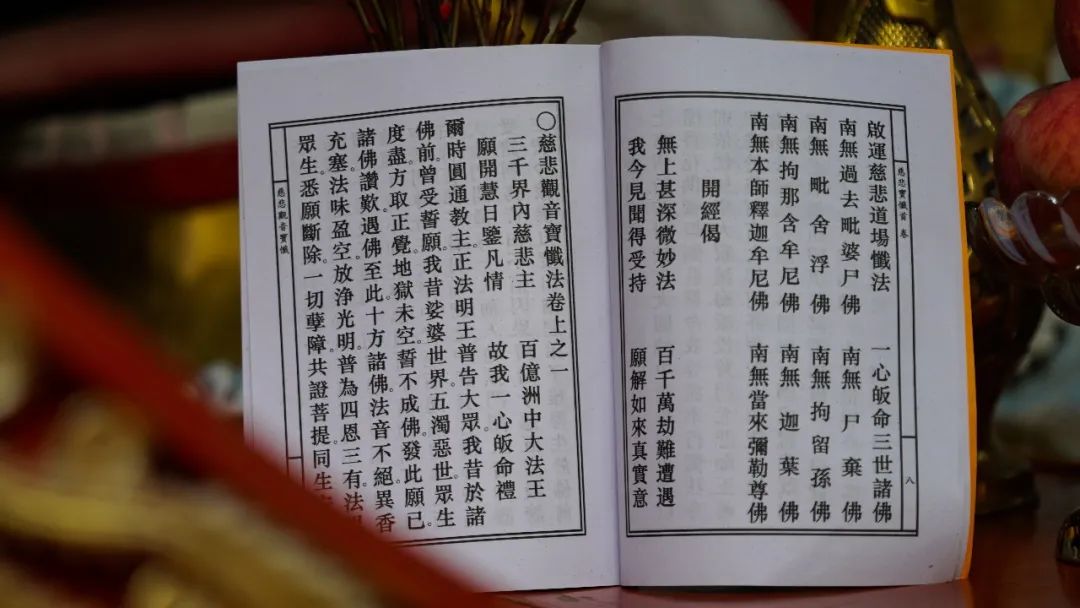 慈悲寶懺首 卷
八
啟運慈悲道場懺法 一心皈命三世諸佛
南無過去毗婆尸佛 南無尸棄佛
南無毗舍浮佛 南無拘留孫佛
南無拘那含牟尼佛 南無迦葉佛
南無本師釋迦牟尼佛 南無當來彌勒尊佛
開經偈
無上甚深微妙法 百千萬劫難遭遇
我今見聞得受持 願解如來真實意
〇慈悲觀音寶懺法卷上之一
三千界內慈悲主 百億洲中大法王
願開慧日鑒凡情 故我一心皈命禮
爾時圓通教主。正法明王普告大眾。我昔於諸
佛前曾受誓願。我昔娑婆世界。五濁惡世。眾生
度盡。方取正覺。地獄未空。誓不成佛。發此願已。
諸佛讚歎。遇佛至此。十方諸佛。法音不絕。異香
充塞。法味盈空。放淨光明。普為四恩三有。法
眾生。悉願斷除。一切孽障。共證菩提。同生
慈悲觀音寶懺